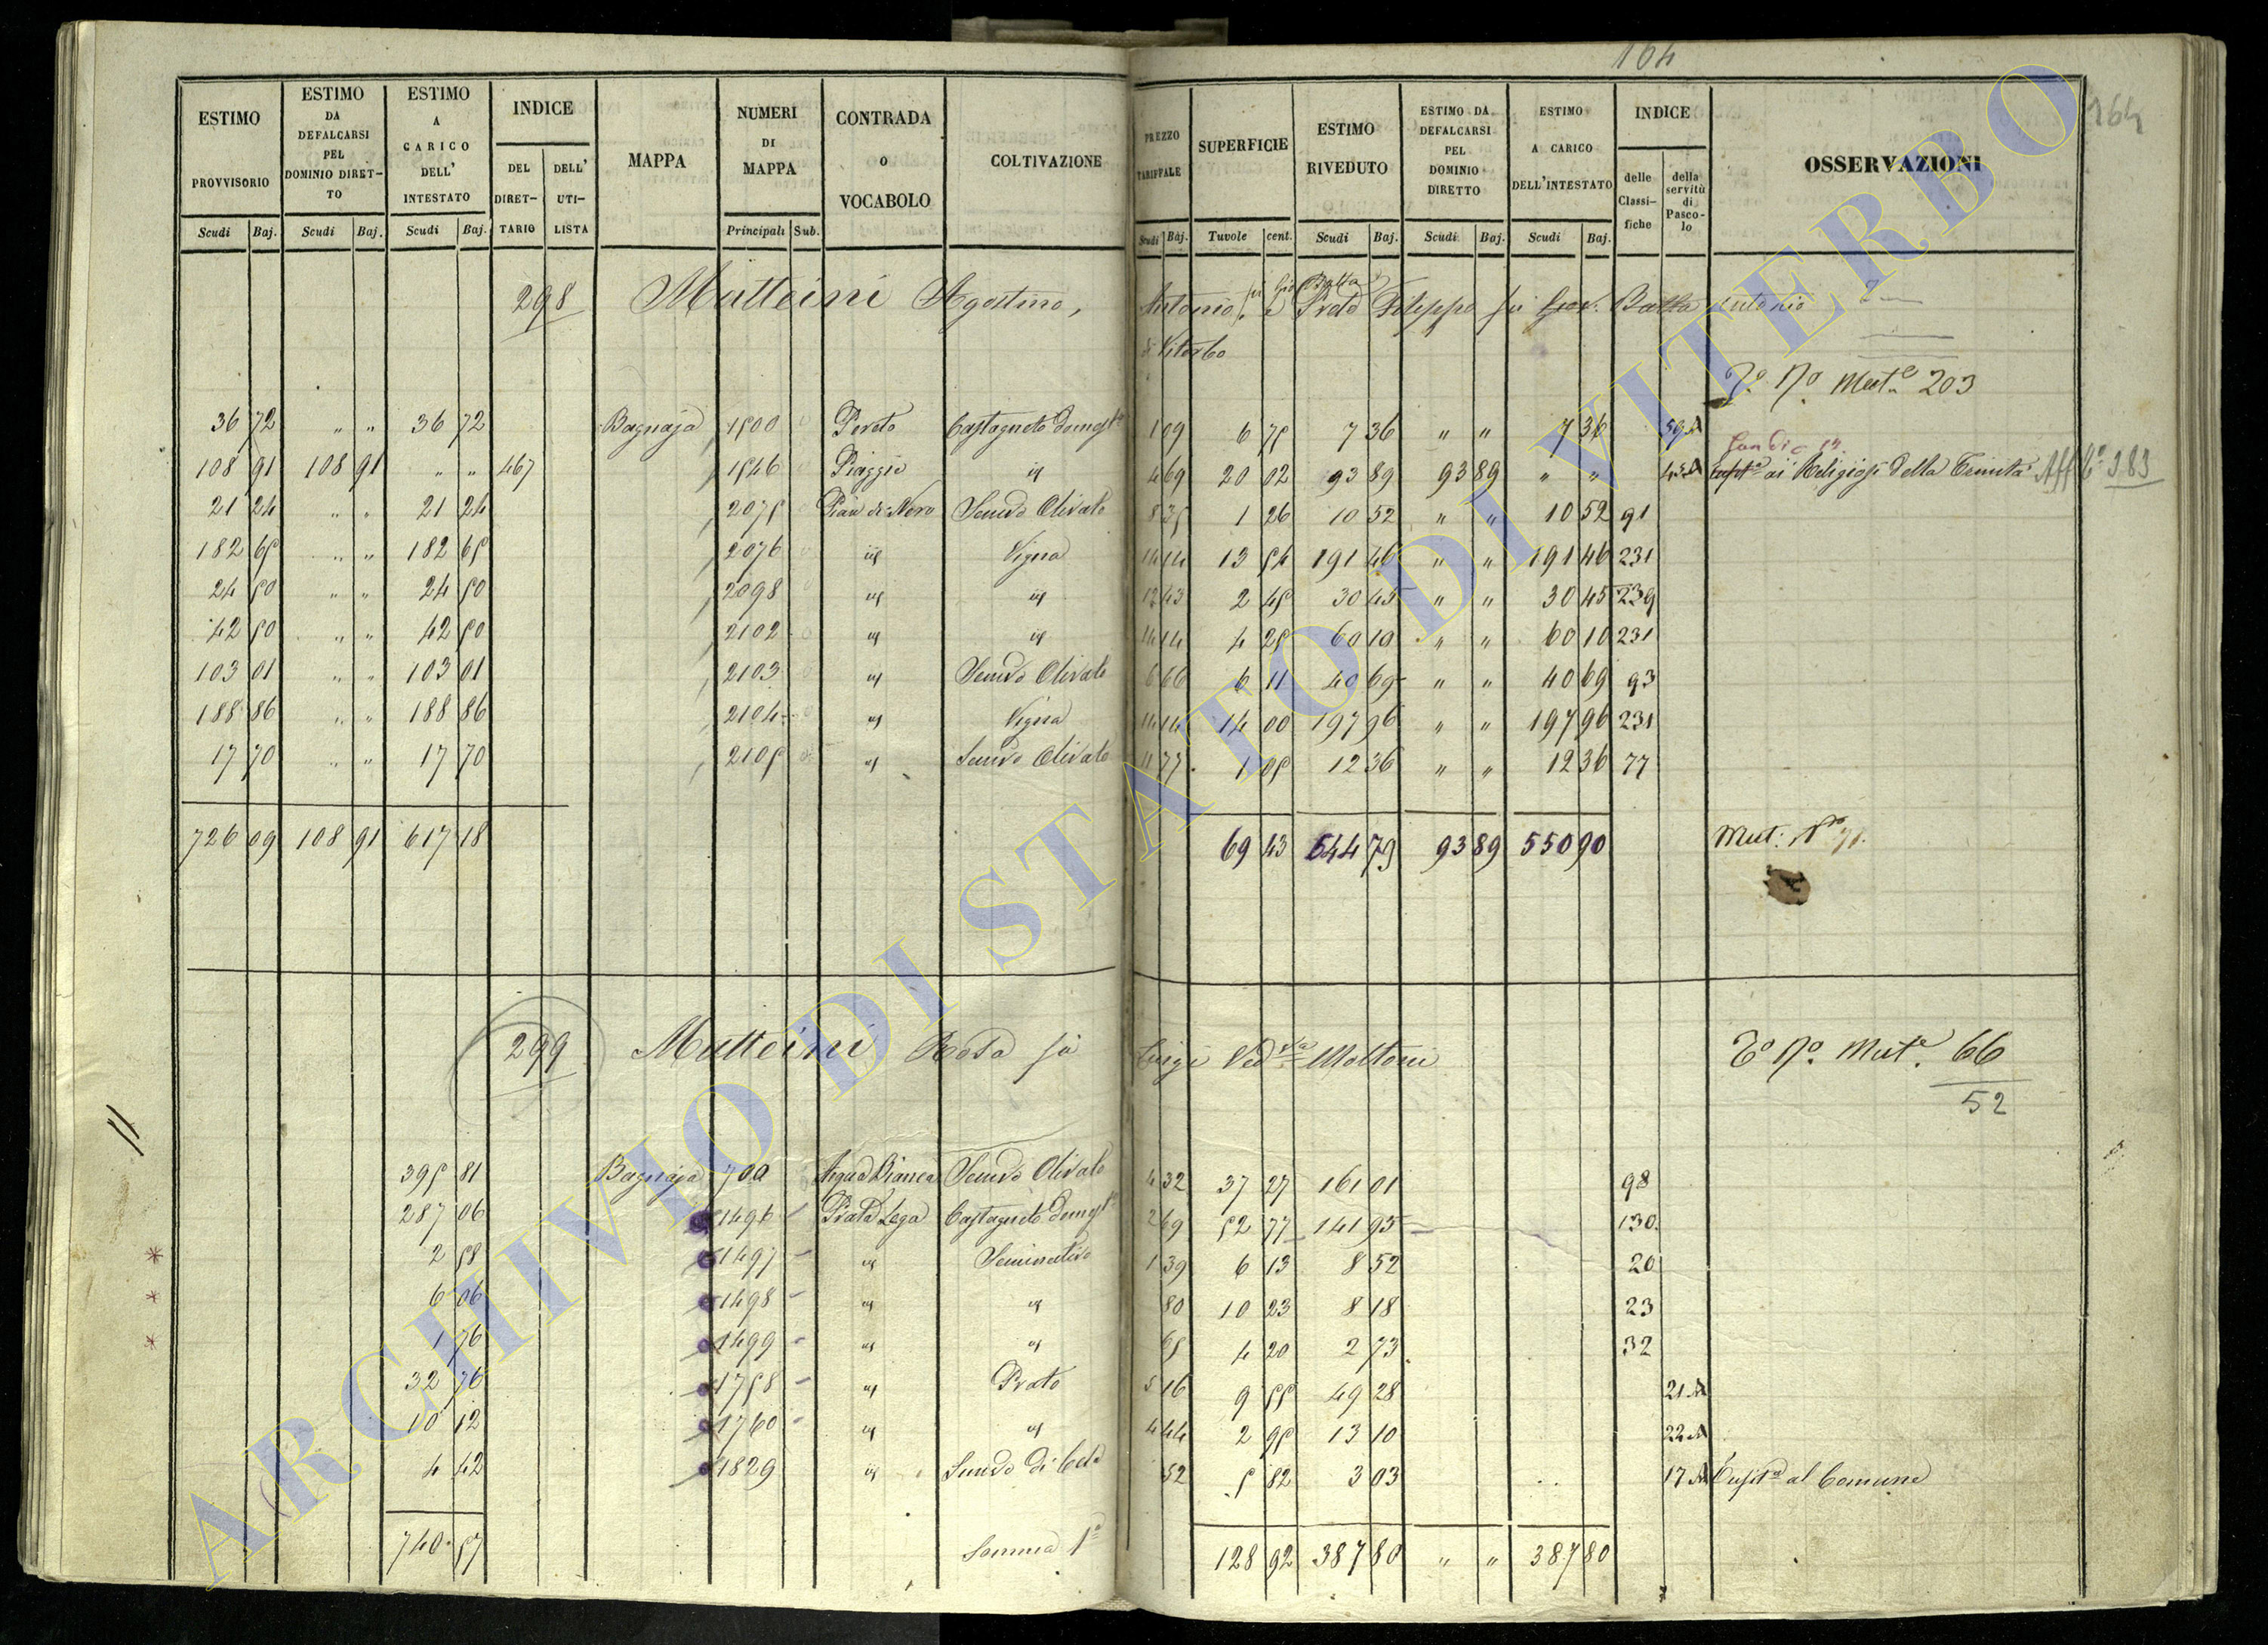 164
164
ESTIMO PROVVISORIO | ESTIMO DA DEFALCARSI PEL DOMINIO DIRET-TO | ESTIMO A CARICO DELL' INTESTATO | INDICE | MAPPA | NUMERI DI MAPPA | CONTRADA o VOCABOLO | COLTIVAZIONE | PREZZO TARIFFALE | SUPERFICIE | ESTIMO RIVEDUTO | ESTIMO DA DEFALCARSI PEL DOMINIO DIRETTO | ESTIMO A CARICO DELL'INTESTATO | INDICE | OSSERVAZIONI
DEL DIRET-TARIO | DELL' UTI-LISTA | delle Classi-fiche | della servitù di Pasco-lo
Scudi | Baj. | Scudi | Baj. | Scudi | Baj. | Principali | Sub. | Scudi | Baj. | Tavole | cent. | Scudi | Baj. | Scudi | Baj. | Scudi | Baj.
298 Matteini Agostino, Antonio fu Gio Batta e Prete Filippo fu Giov. Batta Antonio
di Viterbo
To No Mute 203
36 72 " " 36 72 Bagnaja 1500 Poreto Castagneto domest 1 09 6 75 7 36 " " 7 36 59 A
108 91 108 91 " " 467 1546 Piaggie id 4 69 20 02 93 89 93 89 " " ai Religiosi della Trinita Aff 383
21 24 " " 21 24 2075 Pian di Nero Semvo Olivato 8 35 1 26 10 52 " " 10 52 91
182 65 " " 182 65 2076 id Vigna 14 14 13 54 191 46 " " 191 46 231
24 50 " " 24 50 2098 id id 12 43 2 45 30 45 " " 30 45 239
42 50 " " 42 50 2102 id id 14 14 4 25 60 10 " " 60 10 231
103 01 " " 103 01 2103 id Semvo Olivato 6 66 6 11 40 69 " " 40 69 93
188 86 " " 188 86 2104 id Vigna 14 14 14 00 197 96 " " 197 96 231
17 70 " " 17 70 2105 id Semvo Olivato 11 77 1 05 12 36 " " 12 36 77
726 09 108 91 617 18 69 43 544 79 93 89 550 90 Mut: No 71.
299 Matteini Rosa fu Luigi Vedva Moltoni To No Mute 66
52
395 81 Bagnaja 700 Acqua Bianca Semvo Olivato 4 32 37 27 161 01 98
287 06 1496 Prato Lega Castagneto domest 2 69 52 77 141 95 130
2 58 1497 id Seminativo 1 39 6 13 8 52 20
6 06 1498 id id 80 10 23 8 18 23
1 76 1499 id id 65 4 20 2 73 32
32 76 1758 id Prato 5 16 9 55 49 28 21 A
10 12 1760 id id 4 44 2 95 13 10 22 A
4 42 1829 id Semvo di 52 5 82 3 03 17 A al Comune
740 57 Somma 1a 128 92 387 80 " " 387 80
ARCHIVIO DI STATO DI VITERBO